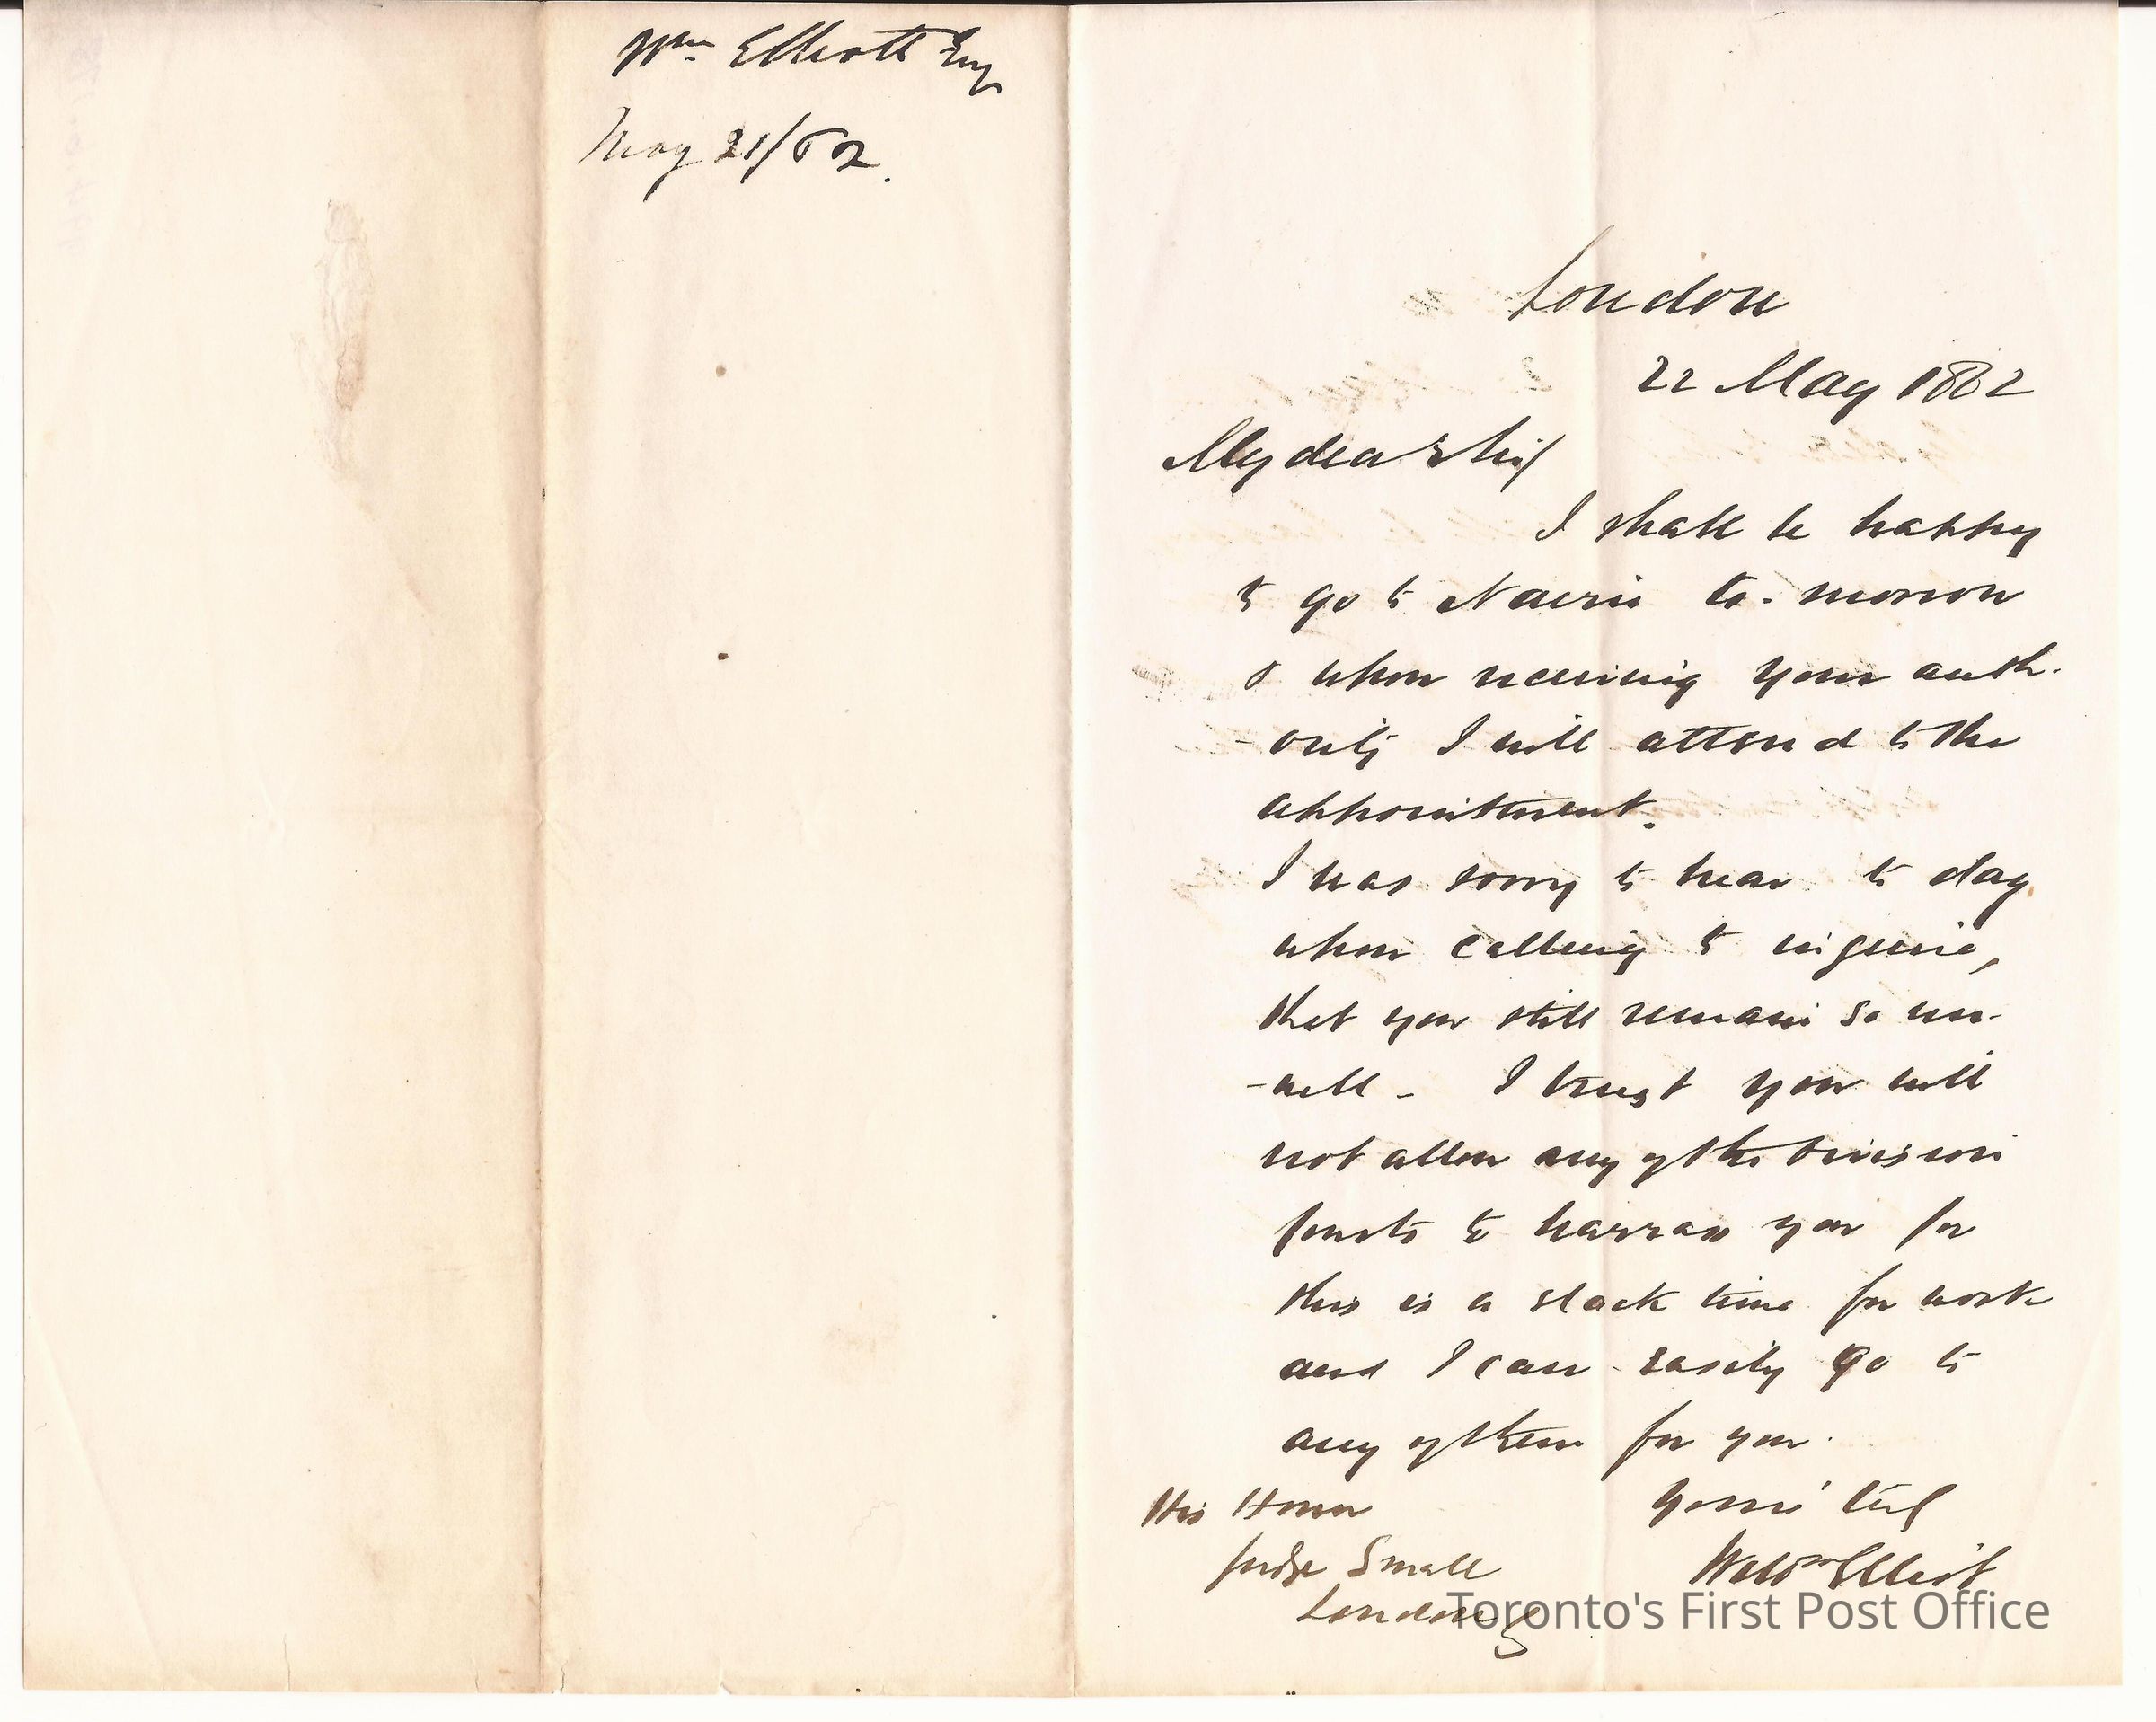 Wm Elliott Esq
May 21/62.
London
22 May 1862
My dear Sir/
I shall be happy
to go to Nairn to-morrow
& upon receiving your auth-
-ority I will attend to the
appointment.
I was sorry to hear to day
upon calling to inquire,
that you still remain so un-
-well - I trust you will
not allow any of the Division
Courts to harrass you for
this is a slack time for work
and I can easily go to
any of them for you.
Yours truly
Willm Elliot
His Honor
Judge Small
London
Toronto's First Post Office